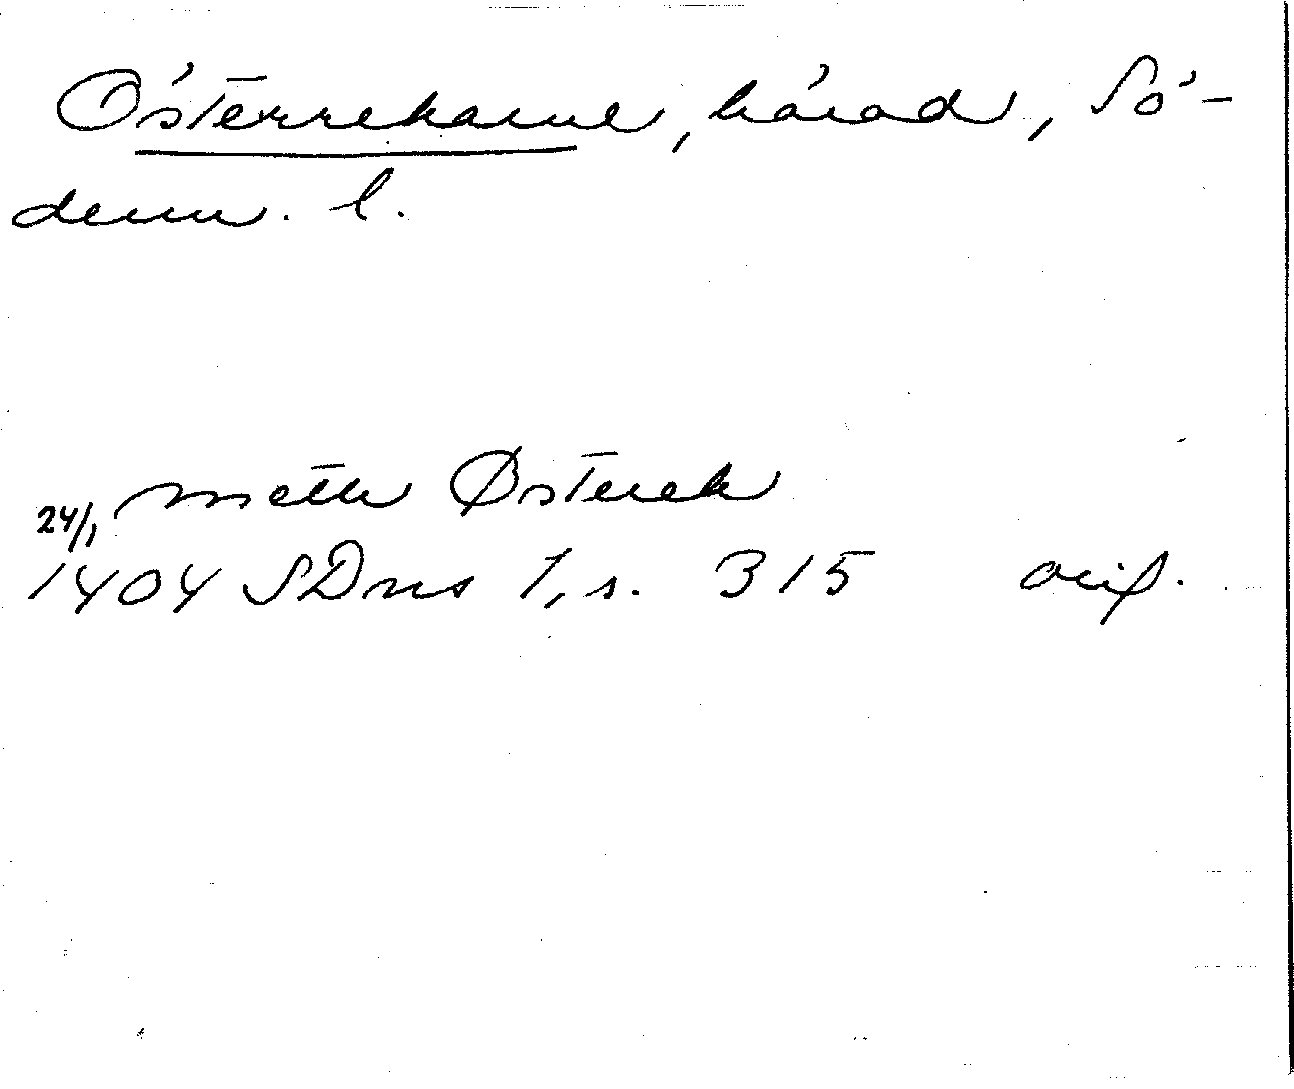 Österrekarne, härad, Sö-
derm. l.
mællu Østerek
24/1
1404 SDns 1, s. 315 orig.